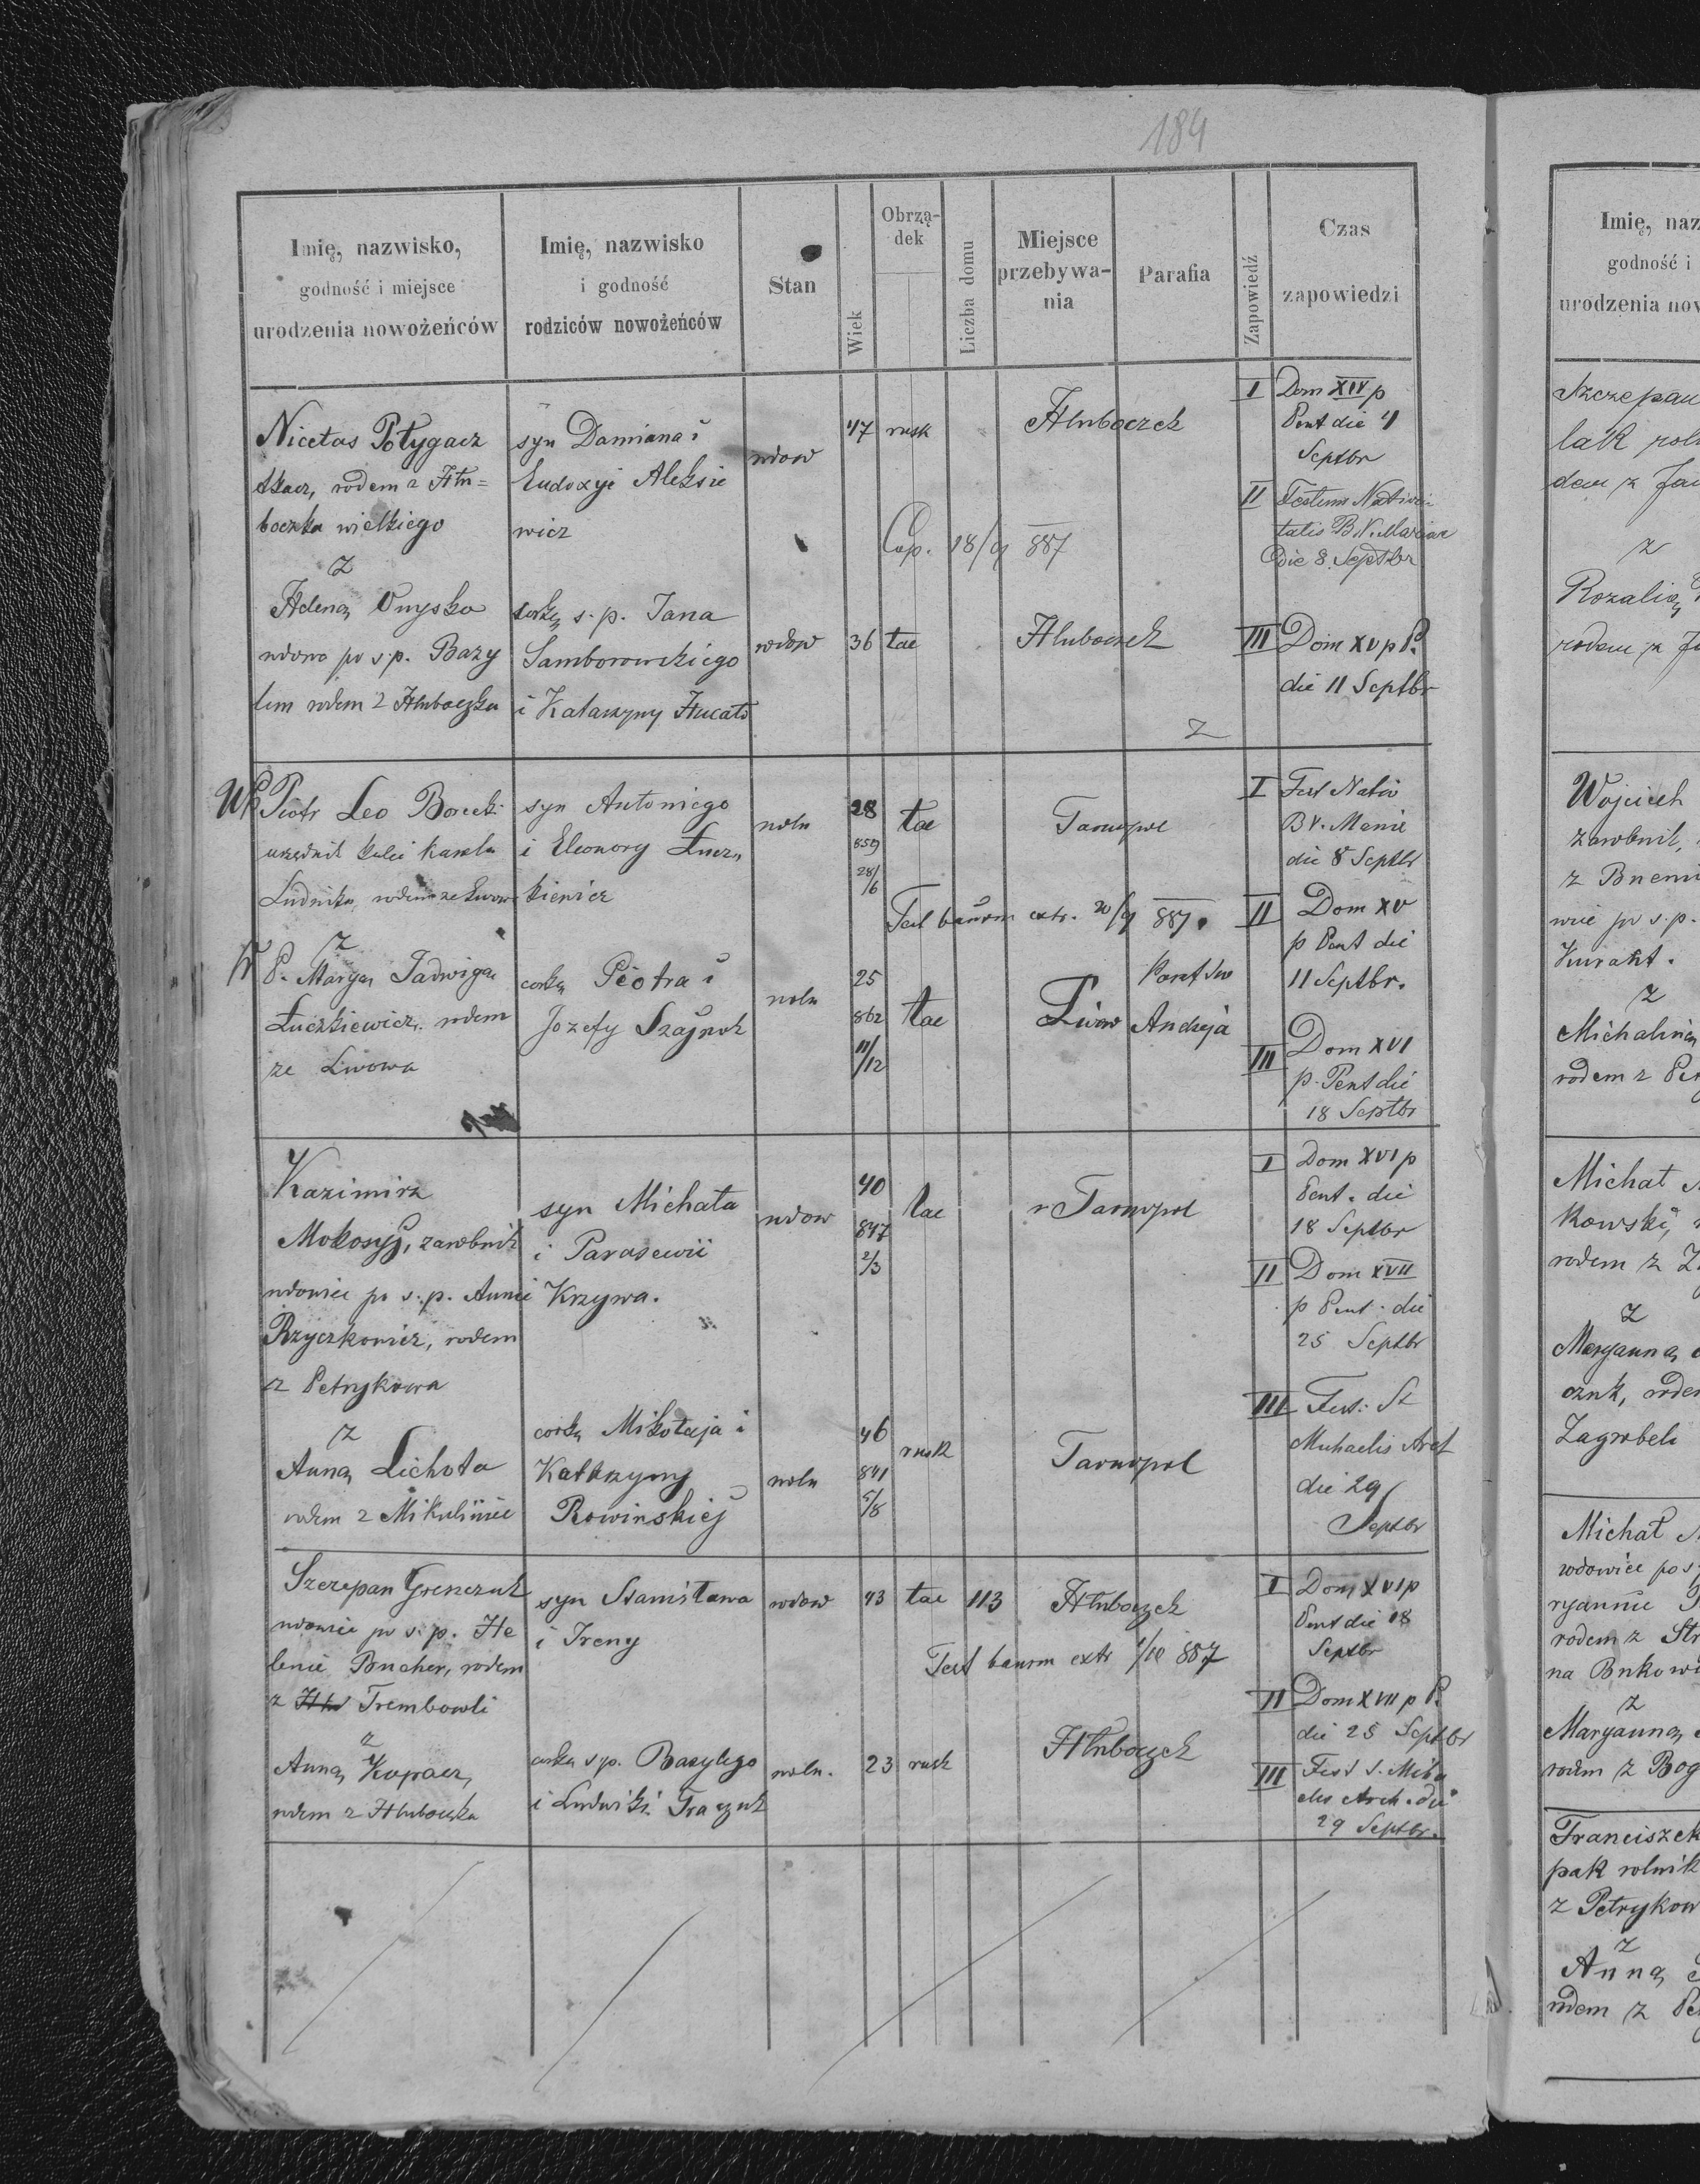 184
Imię, nazwisko,
godność i miejsce
urodzenia nowożeńców
Imię, nazwisko
i godność
rodziców nowożeńców
Stan
Wiek
Obrzą-
dek
Liczba domu
Miejsce
przebywa-
nia
Parafia
Zapowiedź
Czas
zapowiedzi
Nicetas Połygacz
tkacz, rodem z Hłu=
boczka wielkiego
z
Heleną Onysko
wdowa po s.p. Bazy
lim rodem z Hłuboczka
syn Damiana i
Eudoxyi Aleksie
wicz
corką s.p. Jana
Samborowskiego
i Katarzyny
wdow
47 rusk
Hłuboczek
Cop. 18/9 887
wdow
36 łac
Hłuboczek
I Dom XIV p
Pent die 4
Septbr
II Festum Nativi
tatis B.V. Mariae
die 8 Septbr
III Dom XV p P.
die 11 Septbr
Z
Piotr Leo Borecki
urzędnik kolei Karola
Ludwika, rodem ze Lwow
z
P. Maryą Jadwigą
Łuczkiewicz, rodem
ze Lwowa
syn Antoniego
i Eleonory Łucz
kiewicz
corką Piotra i
Jozefy Szajnok
woln
28
859
28/6
łac
Tarnopol
Test bannm extr. 20/9 887.
woln
25
862
11/12
łac
Lwow
Paraf Sw
Andrzeja
I Fest Nativ
B V. Marie
die 8 Septbr
II Dom XV
p Pent die
11 Septbr.
III Dom XVI
p. Pent die
18 Septbr
Kazimirz
Mokosyj, zarobnik
wdowiec po s.p. Annie
Rzyczkowicz, rodem
z Petrykowa
z
Anną Lichota
rodem z Mikuliniec
syn Michała
i Parasewii
Krzywa.
corką Mikołaja i
Katarzyny
Rowinskiej
wdow
40
847
2/3
łac
Tarnopol
woln
46
841
5/8
rusk
Tarnopol
I Dom XVI p
Pent. die
18 Septbr
II Dom XVII
p Pent. die
25 Septbr
III Fest. St
Michaelis Arch
die 29
Septbr
Szczepan Grenczuk
wdowiec po s.p. He
lenie Bucher, rodem
z Trembowli
z
Anną Kopacz,
rodem z Hłuboczka
syn Stanisława
i Ireny
corką s.p. Bazylego
i Ludwiki Graczuk
wdow
43 łac 113 Hłuboczek
Test bannm extr 1/10 887
woln.
23 rusk
Hłuboczek
I Dom XVI p
Pent die 18
Septbr
II Dom XVII p P.
die 25 Septbr
III Fest S. Micha
elis Arch. die
29 Septbr.
Imię, naz
godność i
urodzenia now
Szczepan
lak rol
dem z Jan
z
Rozalią
rodem z
Wojciech
zarobnik,
z
wiec po s.p.
z
Michaliną
rodem z Pet
Michał
kowski,
rodem z
z
Maryanną
rodem
Zagrobeli
Michał
wdowiec po s
ryannie
rodem z Str
na Bukowi
z
Maryanną
rodem z Bog
Franciszek
pak rolnik
z Petrykow
z
Anną
rodem z Pe